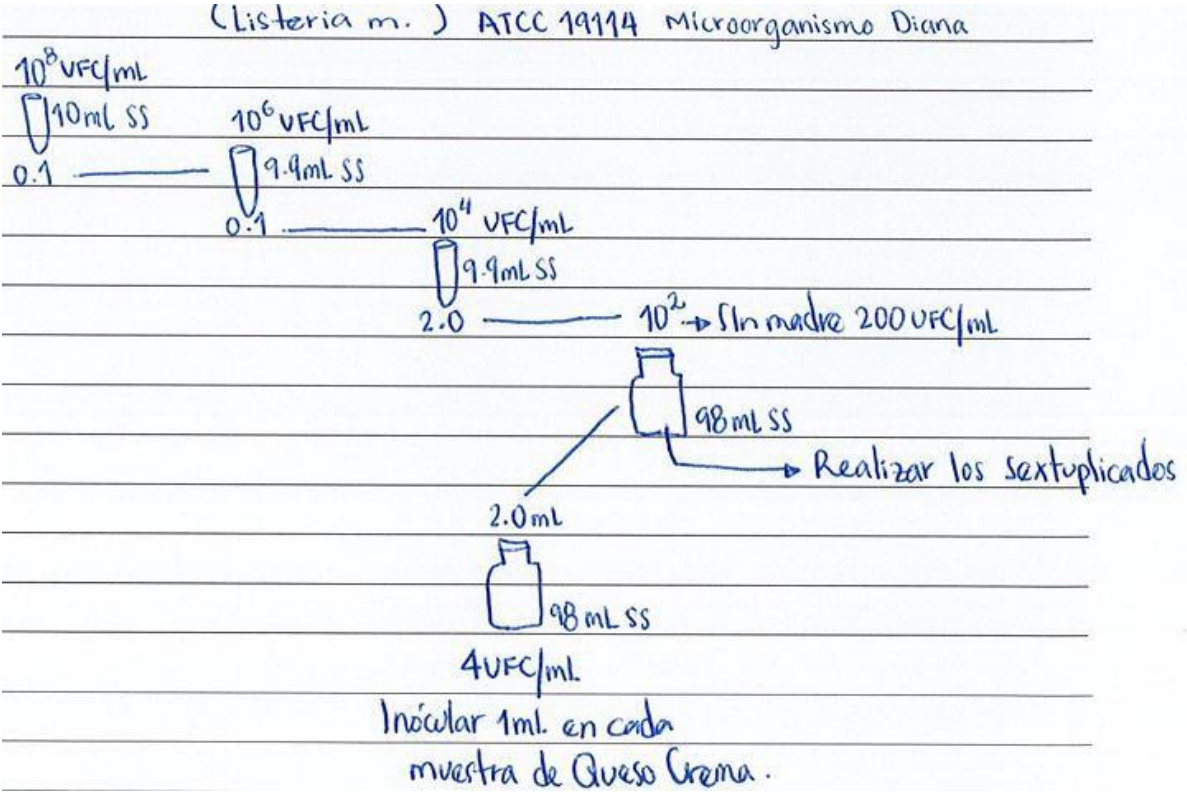 (Listeria m.) ATCC 19114 Microorganismo Diana
10⁸ UFC/mL
10mL SS
0.1
10⁶ UFC/mL
9.9mL SS
0.1
10⁴ UFC/mL
9.9mL SS
2.0
10² → Sln madre 200 UFC/mL
98 mL SS
→ Realizar los sextuplicados
2.0mL
98 mL SS
4UFC/mL
Inócular 1mL en cada
muestra de Queso Crema.